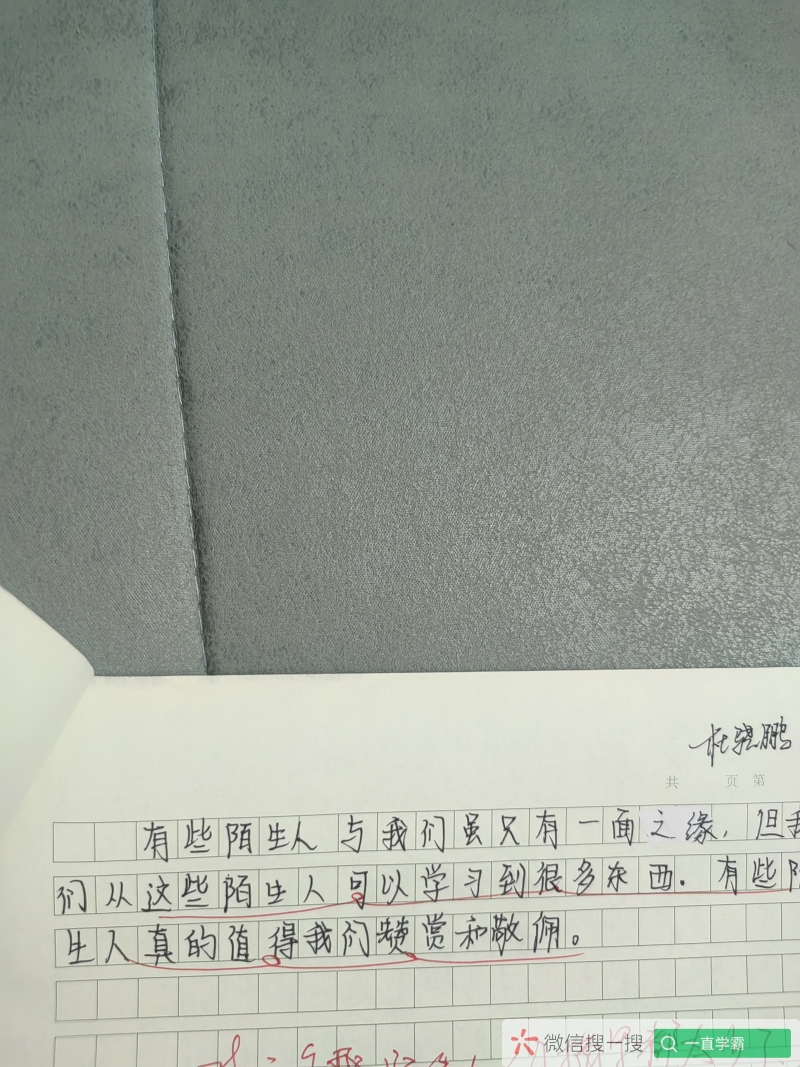 杜晓鹏
共 页 第
有些陌生人与我们虽只有一面之缘,但我
们从这些陌生人可以学习到很多东西.有些陌
生人真的值得我们赞赏和敬佣。
微信搜一搜 一直学霸